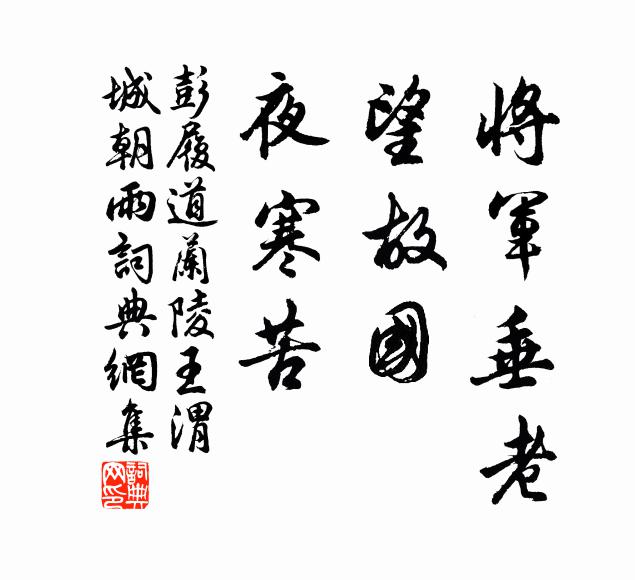 將軍垂老
望故國
夜寒苦
彭履道蘭陵王渭
城朝雨詞典網集
詞典
网印